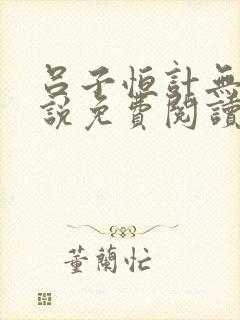 呂子恒計無
說免費閱讀
董蘭忙